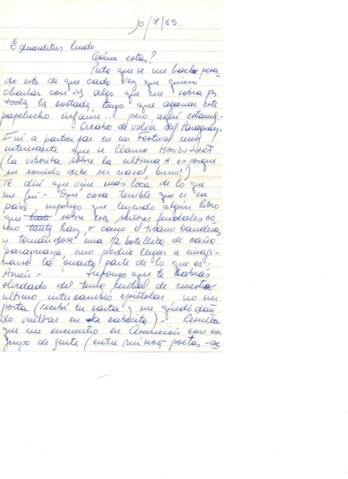 10/7/83.
Eduarditus lindo.
Cómo estas?
Puta que se me hacía pesa-
do esto de que cada vez que quiero
charlar con vs, algo que me sobra pa
toda la volada, tengo que agarrar este
papelucho infame... pero aquí estamos.
Acabo de volver del Paraguay.
Fui a participar en un Festival muy
interesante que se llama MANDU'ARÃ
(la viborita sobre la ultima A es porque
su sonido debe ser nasal, bueno!)
Te diré que vine mas loca de lo que
me fui. Que cosa terrible que es ese
país, supongo que leyendo algún libro
que sobre esos señores feudales co
mo hay, como el tirano bandera
y tomándose una 1/2 botellita de caña
paraguaya, uno podría llegar a imagi-
narse la cuarta parte de lo que es.
Supongo que te habrás
olvidado del tema central de nuestro
ultimo intercambio epistolar no im
porta (recibí tu carta y me quedó dan
do vueltas en la cabecita). Resulta
que me encuentro en Asunción con un
grupo de gente (entre músicos, poetas